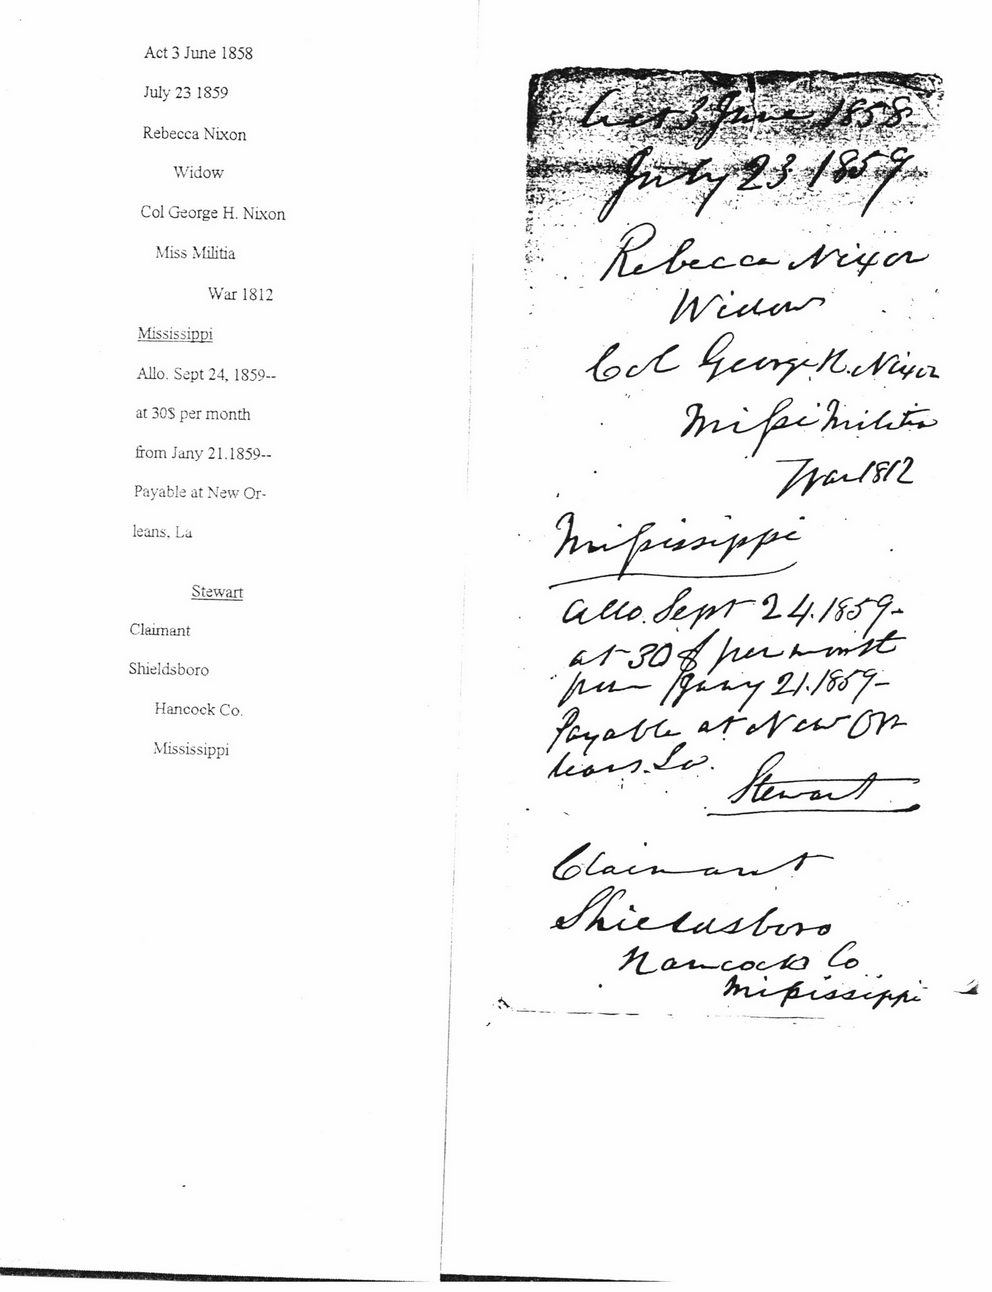 Act 3 June 1858
July 23 1859
Rebecca Nixon
Widow
Col George H. Nixon
Miss Militia
War 1812
Mississippi
Allo. Sept 24, 1859--
at 30$ per month
from Jany 21.1859--
Payable at New Or-
leans, La
Stewart
Claimant
Shieldsboro
Hancock Co.
Mississippi
Act 3 June 1858
July 23 1859
Rebecca Nixon
Widow
Col George H. Nixon
Missi Militia
War 1812
Mississippi
Allo. Sept 24. 1859-
at 30$ per month
from Jany 21. 1859-
Payable at New Or
leans. La.
Stewart
Claimant
Shieldsboro
Hancock Co
Mississippi